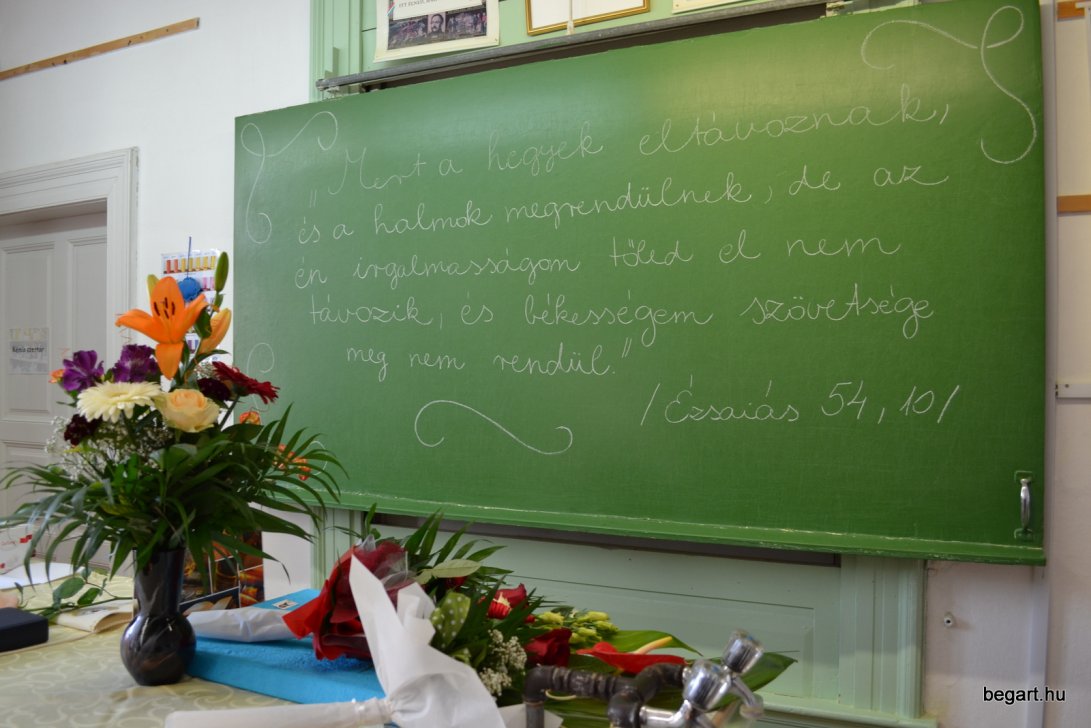 „Mert a hegyek eltávoznak,
és a halmok megrendülnek, de az
én irgalmasságom tőled el nem
távozik, és békességem szövetsége
meg nem rendül."
/Ézsaiás 54,10/
Kémia szertár
begart.hu